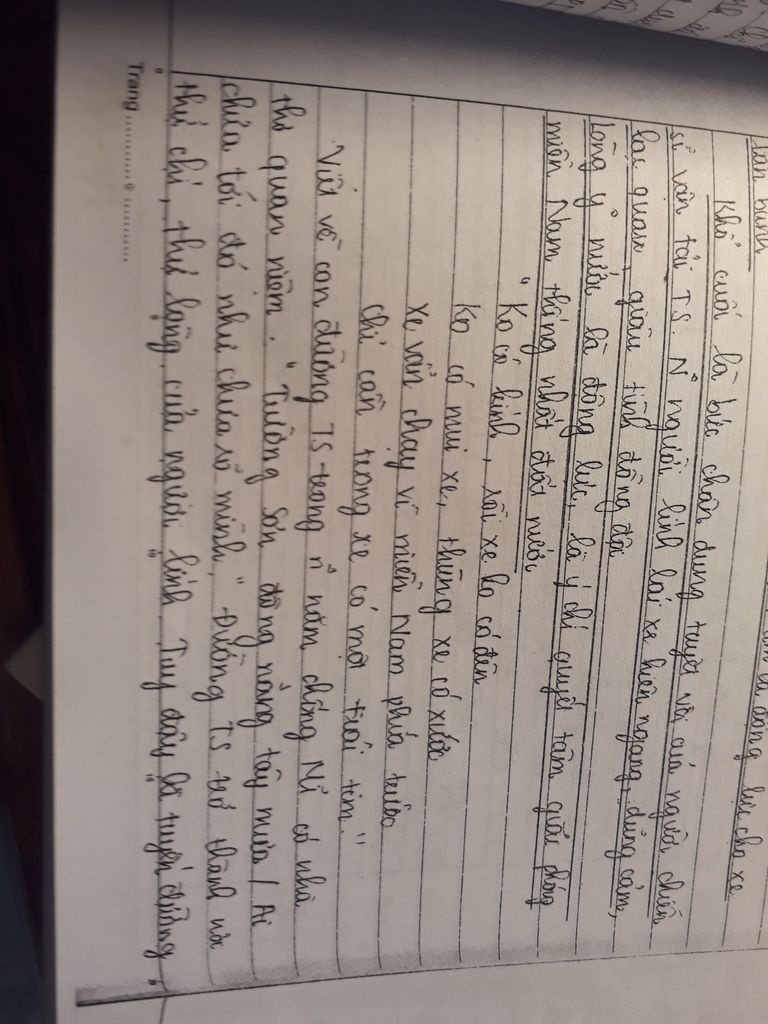 lăn bánh
Khổ cuối là bức chân dung tuyệt vời của người chiến
sĩ vận tải TS. N~ người lính lái xe hiên ngang, dũng cảm,
lạc quan, giàu tình đồng đội
Lòng y nước là động lực, là ý chí quyết tâm giải phóng
miền Nam thống nhất đất nước
"Ko có kính, rồi xe ko có đèn
Ko có mui xe, thùng xe có xước
Xe vẫn chạy vì miền Nam phía trước
Chỉ cần trong xe có một trái tim."
Viết về con đường TS trong n~ năm chống Mĩ có nhà
thơ quan niệm. "Trường Sơn đông nắng tây mưa / Ai
chưa tới đó như chưa rõ mình" Đường TS trở thành nơi
thử chí, thử lòng của người lính. Tuy đây là tuyến đường
Trang